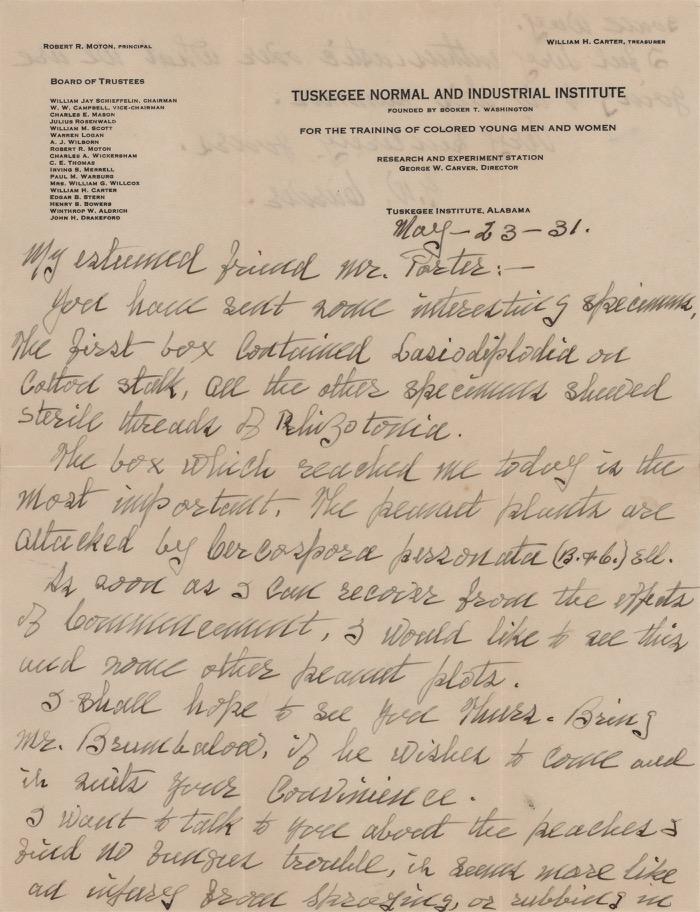 ROBERT R. MOTON, PRINCIPAL
WILLIAM H. CARTER, TREASURER
BOARD OF TRUSTEES
WILLIAM JAY SCHIEFFELIN, CHAIRMAN
W. W. CAMPBELL, VICE-CHAIRMAN
CHARLES E. MASON
JULIUS ROSENWALD
WILLIAM M. SCOTT
WARREN LOGAN
A. J. WILBORN
ROBERT R. MOTON
CHARLES A. WICKERSHAM
C. E. THOMAS
IRVING S. MERRELL
PAUL M. WARBURG
MRS. WILLIAM G. WILLCOX
WILLIAM H. CARTER
EDGAR B. STERN
HENRY S. BOWERS
WINTHROP W. ALDRICH
JOHN H. DRAKEFORD
TUSKEGEE NORMAL AND INDUSTRIAL INSTITUTE
FOUNDED BY BOOKER T. WASHINGTON
FOR THE TRAINING OF COLORED YOUNG MEN AND WOMEN
RESEARCH AND EXPERIMENT STATION
GEORGE W. CARVER, DIRECTOR
TUSKEGEE INSTITUTE, ALABAMA
May - 23 - 31.
My esteemed friend Mr. Porter:-
You have sent some interesting specimens,
The first box contained Lasiodiplodia on
Cotton stalk, all the other specimens shewed
sterile threads of Rhizotonia.
The box which reached me today is the
most important. The peanut plants are
attacked by Cercospora personata (B.&C.) Ell.
As soon as I can recover from the effects
of Commencement, I would like to see this
and some other peanut plots.
I shall hope to see you Thurs. Bring
Mr. Brumbalow, if he wishes to come and
it suits your Convinience.
I want to talk to you about the peaches I
find no fungus trouble, it seems more like
an injury from spraying, or rubbing in